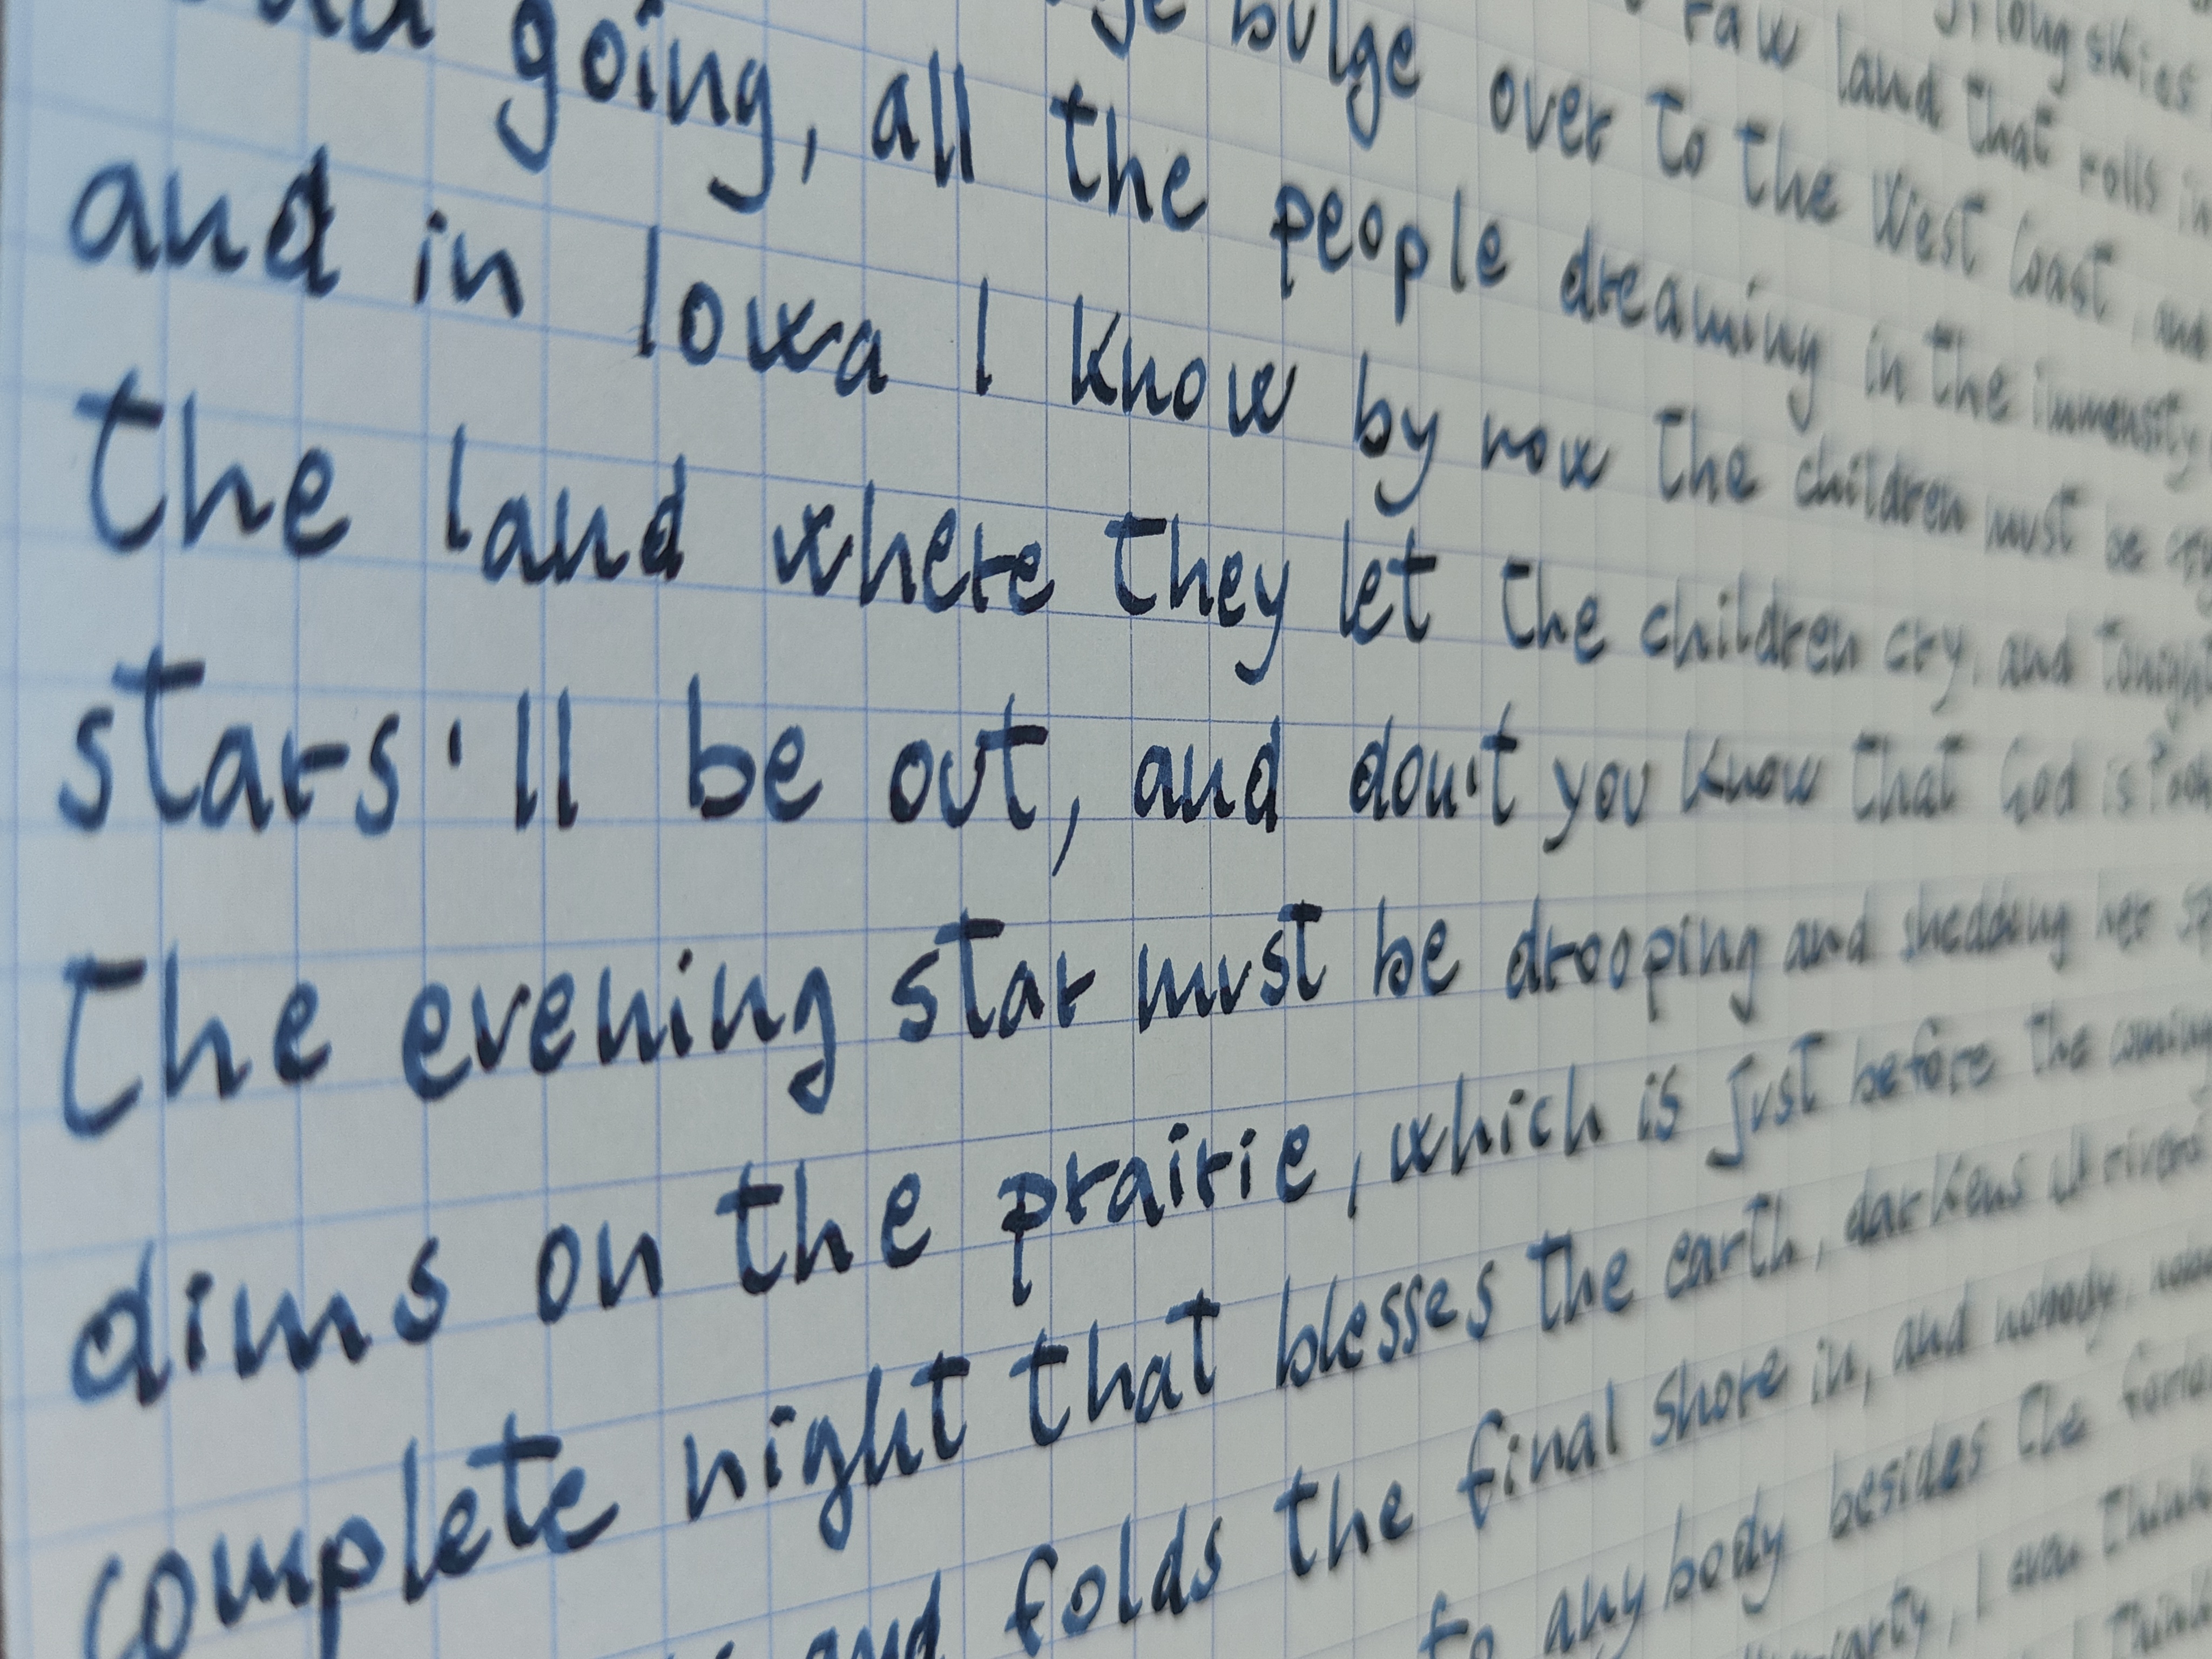 long skies
raw land that rolls in
bulge over to the West Coast, and
going, all the people dreaming in the immensity
and in Iowa I know by now the children must be
the land where they let the children cry, and tonight
stars'll be out, and don't you know that God is
the evening star must be drooping and shedding her
dims on the prairie, which is just before the coming
complete night that blesses the earth, darkens rivers
and folds the final shore in, and nobody,
to anybody besides the
I even think
I think